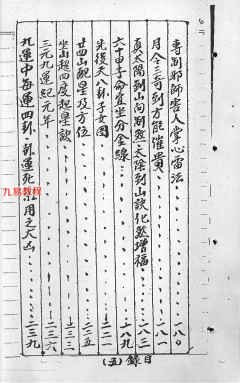 專制邪師害人掌心雷法……一八〇
月人士三奇到方能催貴……一八一
真太陽到山向到煞太陰到山訣化煞增福……一八三
六十甲子命宜坐分金線……一八九
先後天八卦子女圖……二一一
廿四山觀星及方位……二二五
坐山起四度起星訣……二三三
三元九運紀元年……二三六
九運中每運四卦卦運死卦用之大凶……二三九
目錄（五）
九易教程